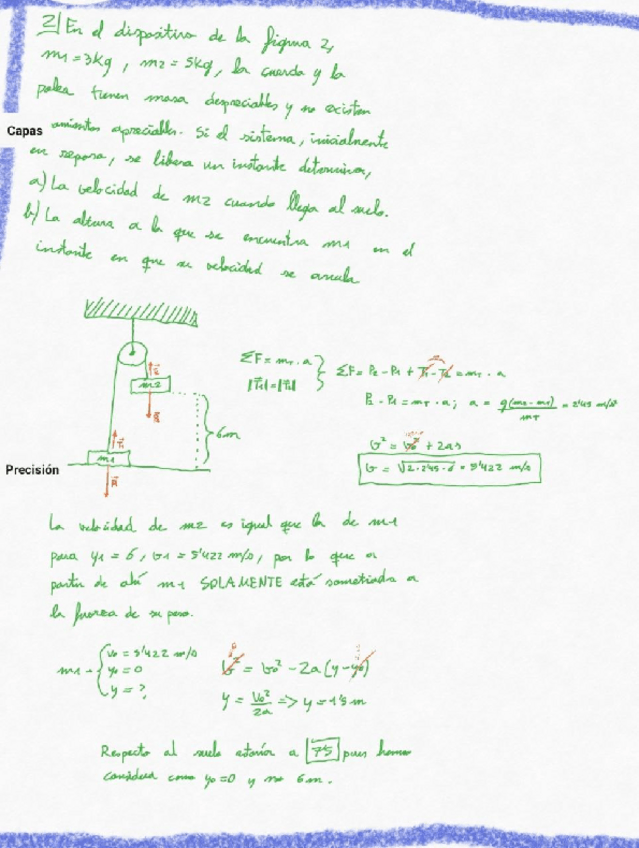 2| En el dispositivo de la figura 2,
m1 = 3kg, m2 = 5kg, la cuerda y la
polea tienen masa despreciables y no existen
Capas
amientos apreciables. Si el sistema, inicialmente
en reposo, se libera un instante determina,
a) La velocidad de m2 cuando llega al suelo.
b) La altura a la que se encuentra m1 en el
instante en que su velocidad se anula
m2
6m
m1
Precisión
ΣF = mT · a
|T1| = |T2|
ΣF = P2 - P1 + T1 - T2 = mT · a
P2 - P1 = mT · a ; a = g(m2 - m1) / mT = 2'45 m/s²
v² = v0² + 2as
v = √2·2'45·6 = 5'422 m/s
La velocidad de m2 es igual que la de m1
para y1 = 6, v1 = 5'422 m/s, por lo que a
partir de ahí m1 SOLAMENTE está sometida a
la fuerza de su peso.
m1 → v0 = 5'422 m/s
y0 = 0
y = ?
v² = v0² - 2a (y - y0)
y = v0² / 2a => y = 1'5 m
Respecto al suelo estaría a 7'5 pues hemos
considera como y0 = 0 y no 6m.